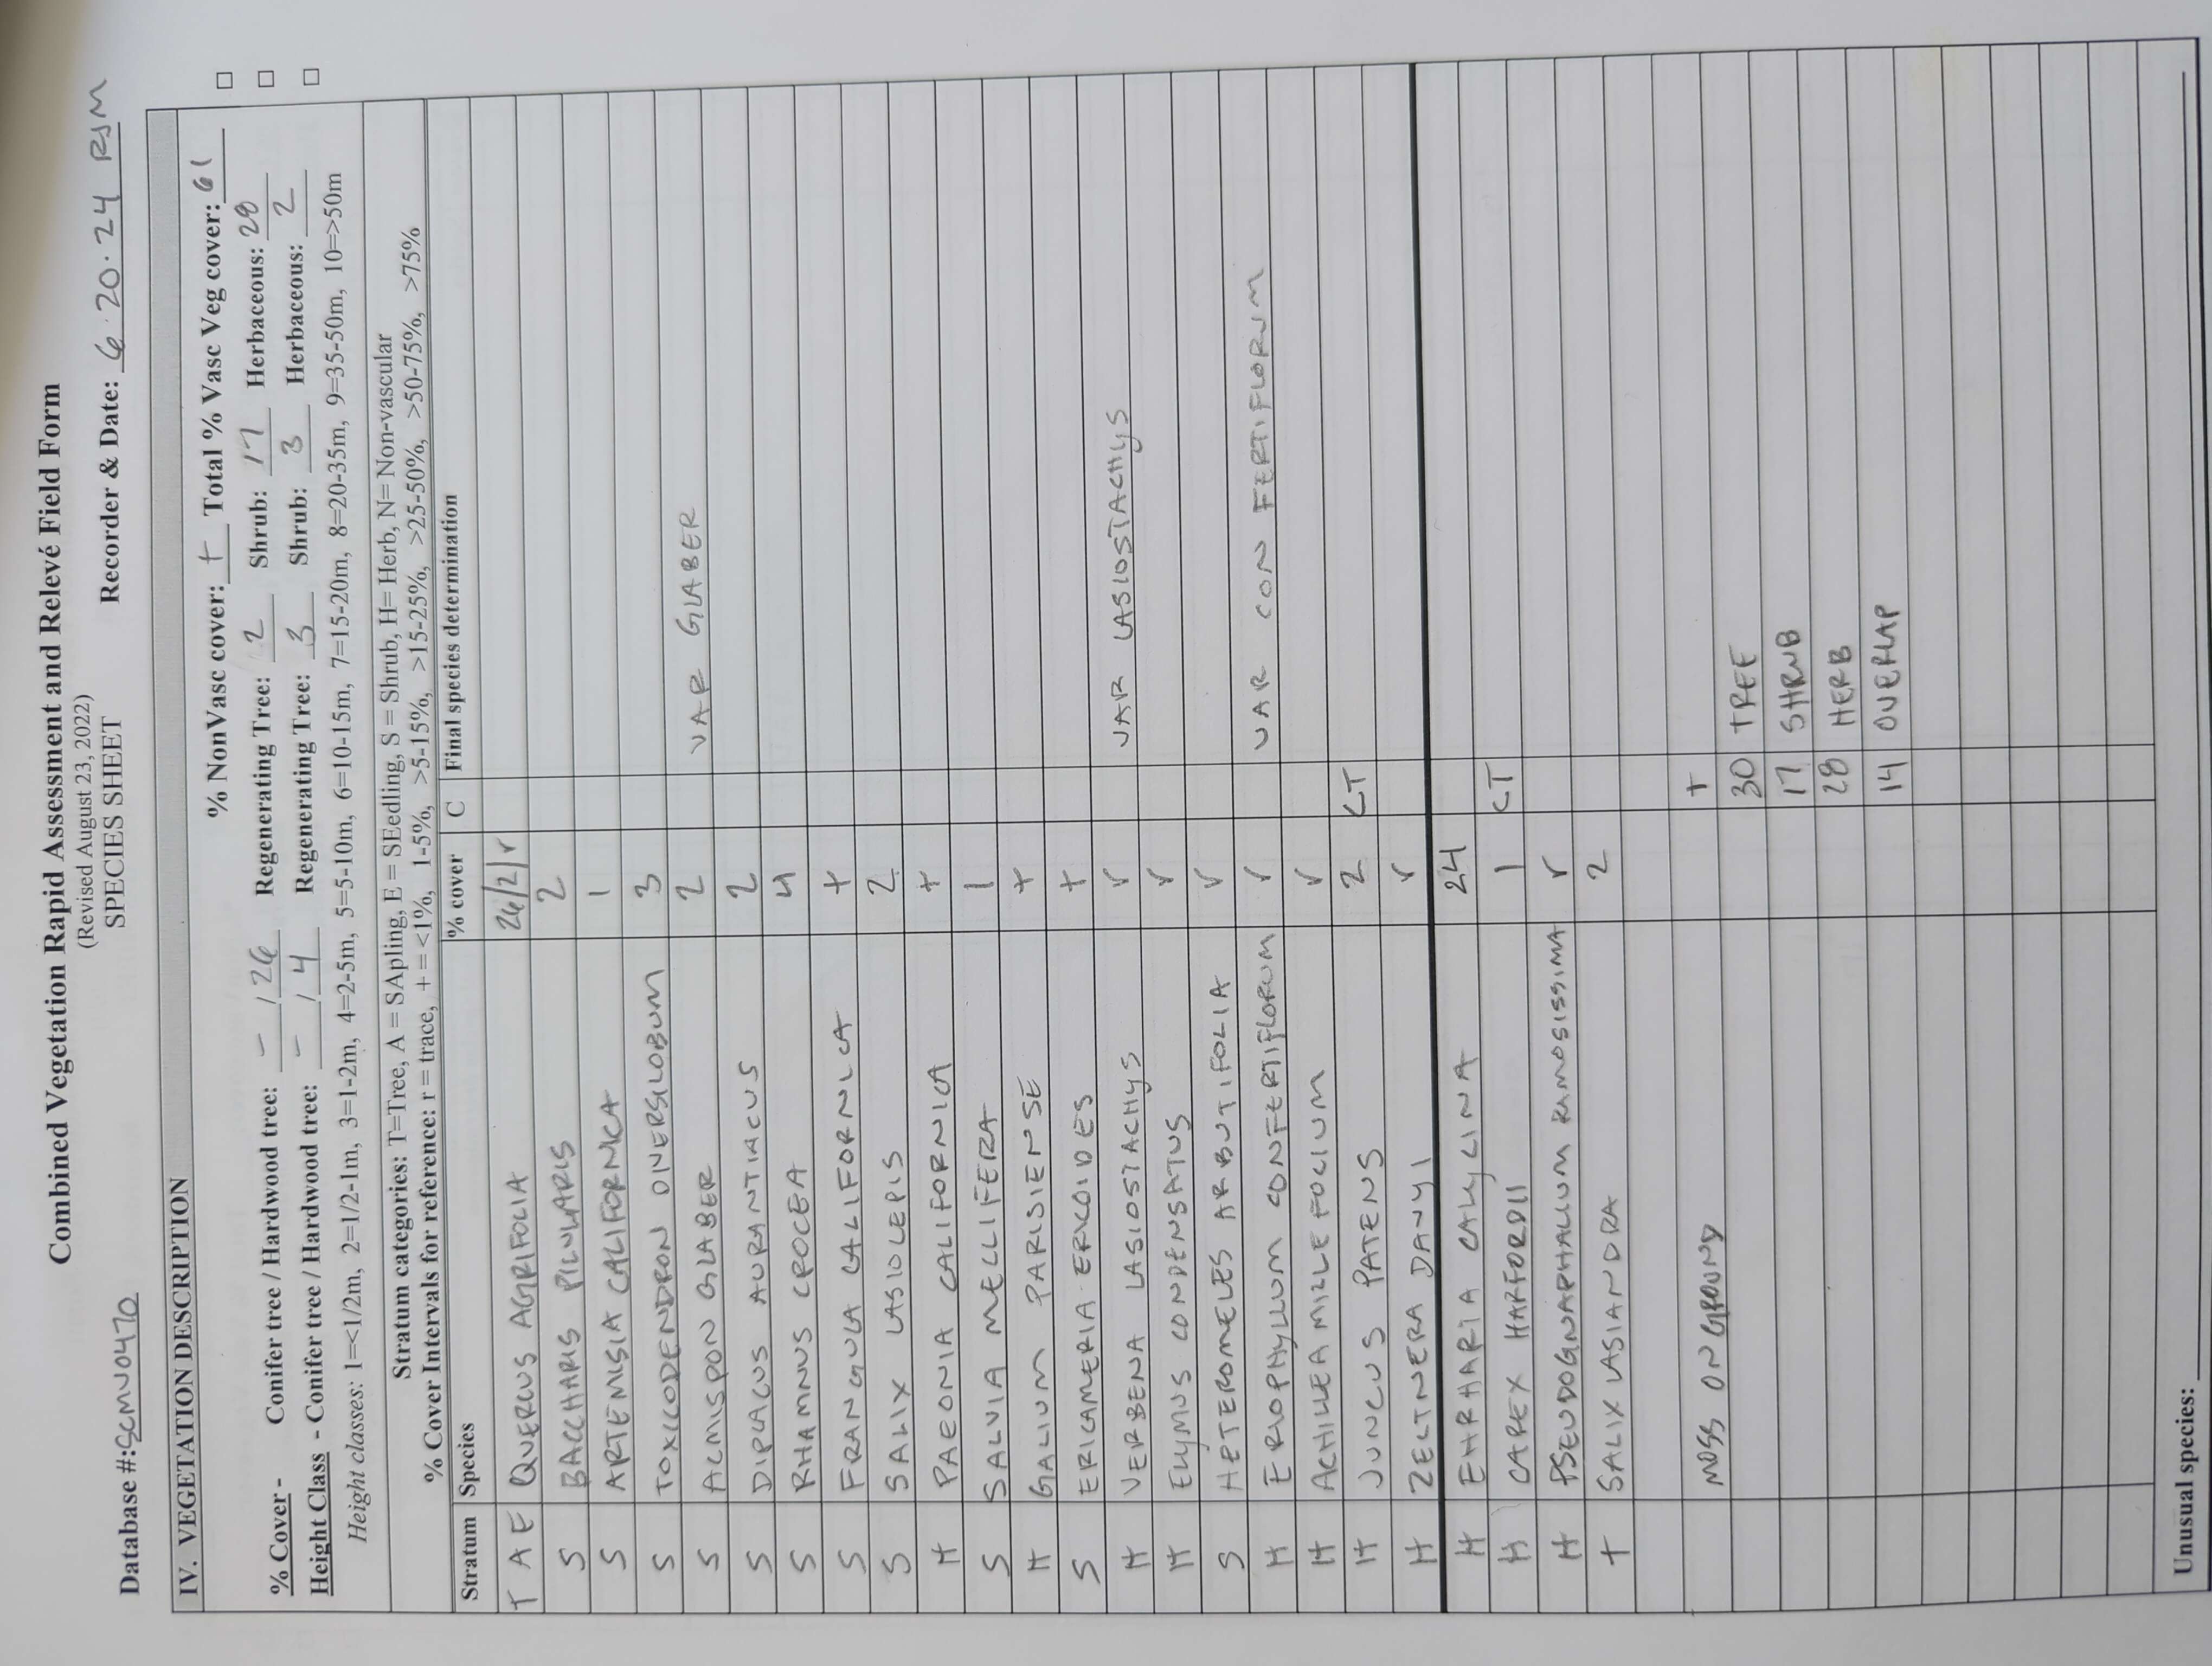 Combined Vegetation Rapid Assessment and Relevé Field Form
(Revised August 23, 2022)
SPECIES SHEET
Database #: SCMV0470 Recorder & Date: 6·20·24 RJM
IV. VEGETATION DESCRIPTION
% NonVasc cover: + Total % Vasc Veg cover: 61 □
% Cover - Conifer tree / Hardwood tree: - / 26 Regenerating Tree: 2 Shrub: 17 Herbaceous: 28 □
Height Class - Conifer tree / Hardwood tree: - / 4 Regenerating Tree: 3 Shrub: 3 Herbaceous: 2 □
Height classes: 1=<1/2m, 2=1/2-1m, 3=1-2m, 4=2-5m, 5=5-10m, 6=10-15m, 7=15-20m, 8=20-35m, 9=35-50m, 10=>50m
Stratum categories: T=Tree, A = SApling, E = SEedling, S = Shrub, H= Herb, N= Non-vascular
% Cover Intervals for reference: r = trace, + = <1%, 1-5%, >5-15%, >15-25%, >25-50%, >50-75%, >75%
Stratum Species % cover C Final species determination
T A E QUERCUS AGRIFOLIA 26/2/r
S BACCHARIS PILULARIS 2
S ARTEMISIA CALIFORNICA 1
S TOXICODENDRON DIVERSILOBUM 3
S ACMISPON GLABER 2 VAR GLABER
S DIPLACUS AURANTIACUS 2
S RHAMNUS CROCEA 4
S FRANGULA CALIFORNICA +
S SALIX LASIOLEPIS 2
H PAEONIA CALIFORNICA +
S SALVIA MELLIFERA 1
H GALIUM PARISIENSE +
S ERICAMERIA ERICOIDES +
H VERBENA LASIOSTACHYS r VAR LASIOSTACHYS
H ELYMUS CONDENSATUS r
S HETEROMELES ARBUTIFOLIA r
H ERIOPHYLLUM CONFERTIFLORUM r VAR CONFERTIFLORUM
H ACHILLEA MILLEFOLIUM r
H JUNCUS PATENS 2 CT
H ZELTNERA DAVYI r
H EHRHARTA CALYCINA 24
H CAREX HARFORDII 1 CT
H PSEUDOGNAPHALIUM RAMOSISSIMA r
T SALIX LASIANDRA 2
MOSS ON GROUND +
30 TREE
17 SHRUB
28 HERB
14 OVERLAP
Unusual species: